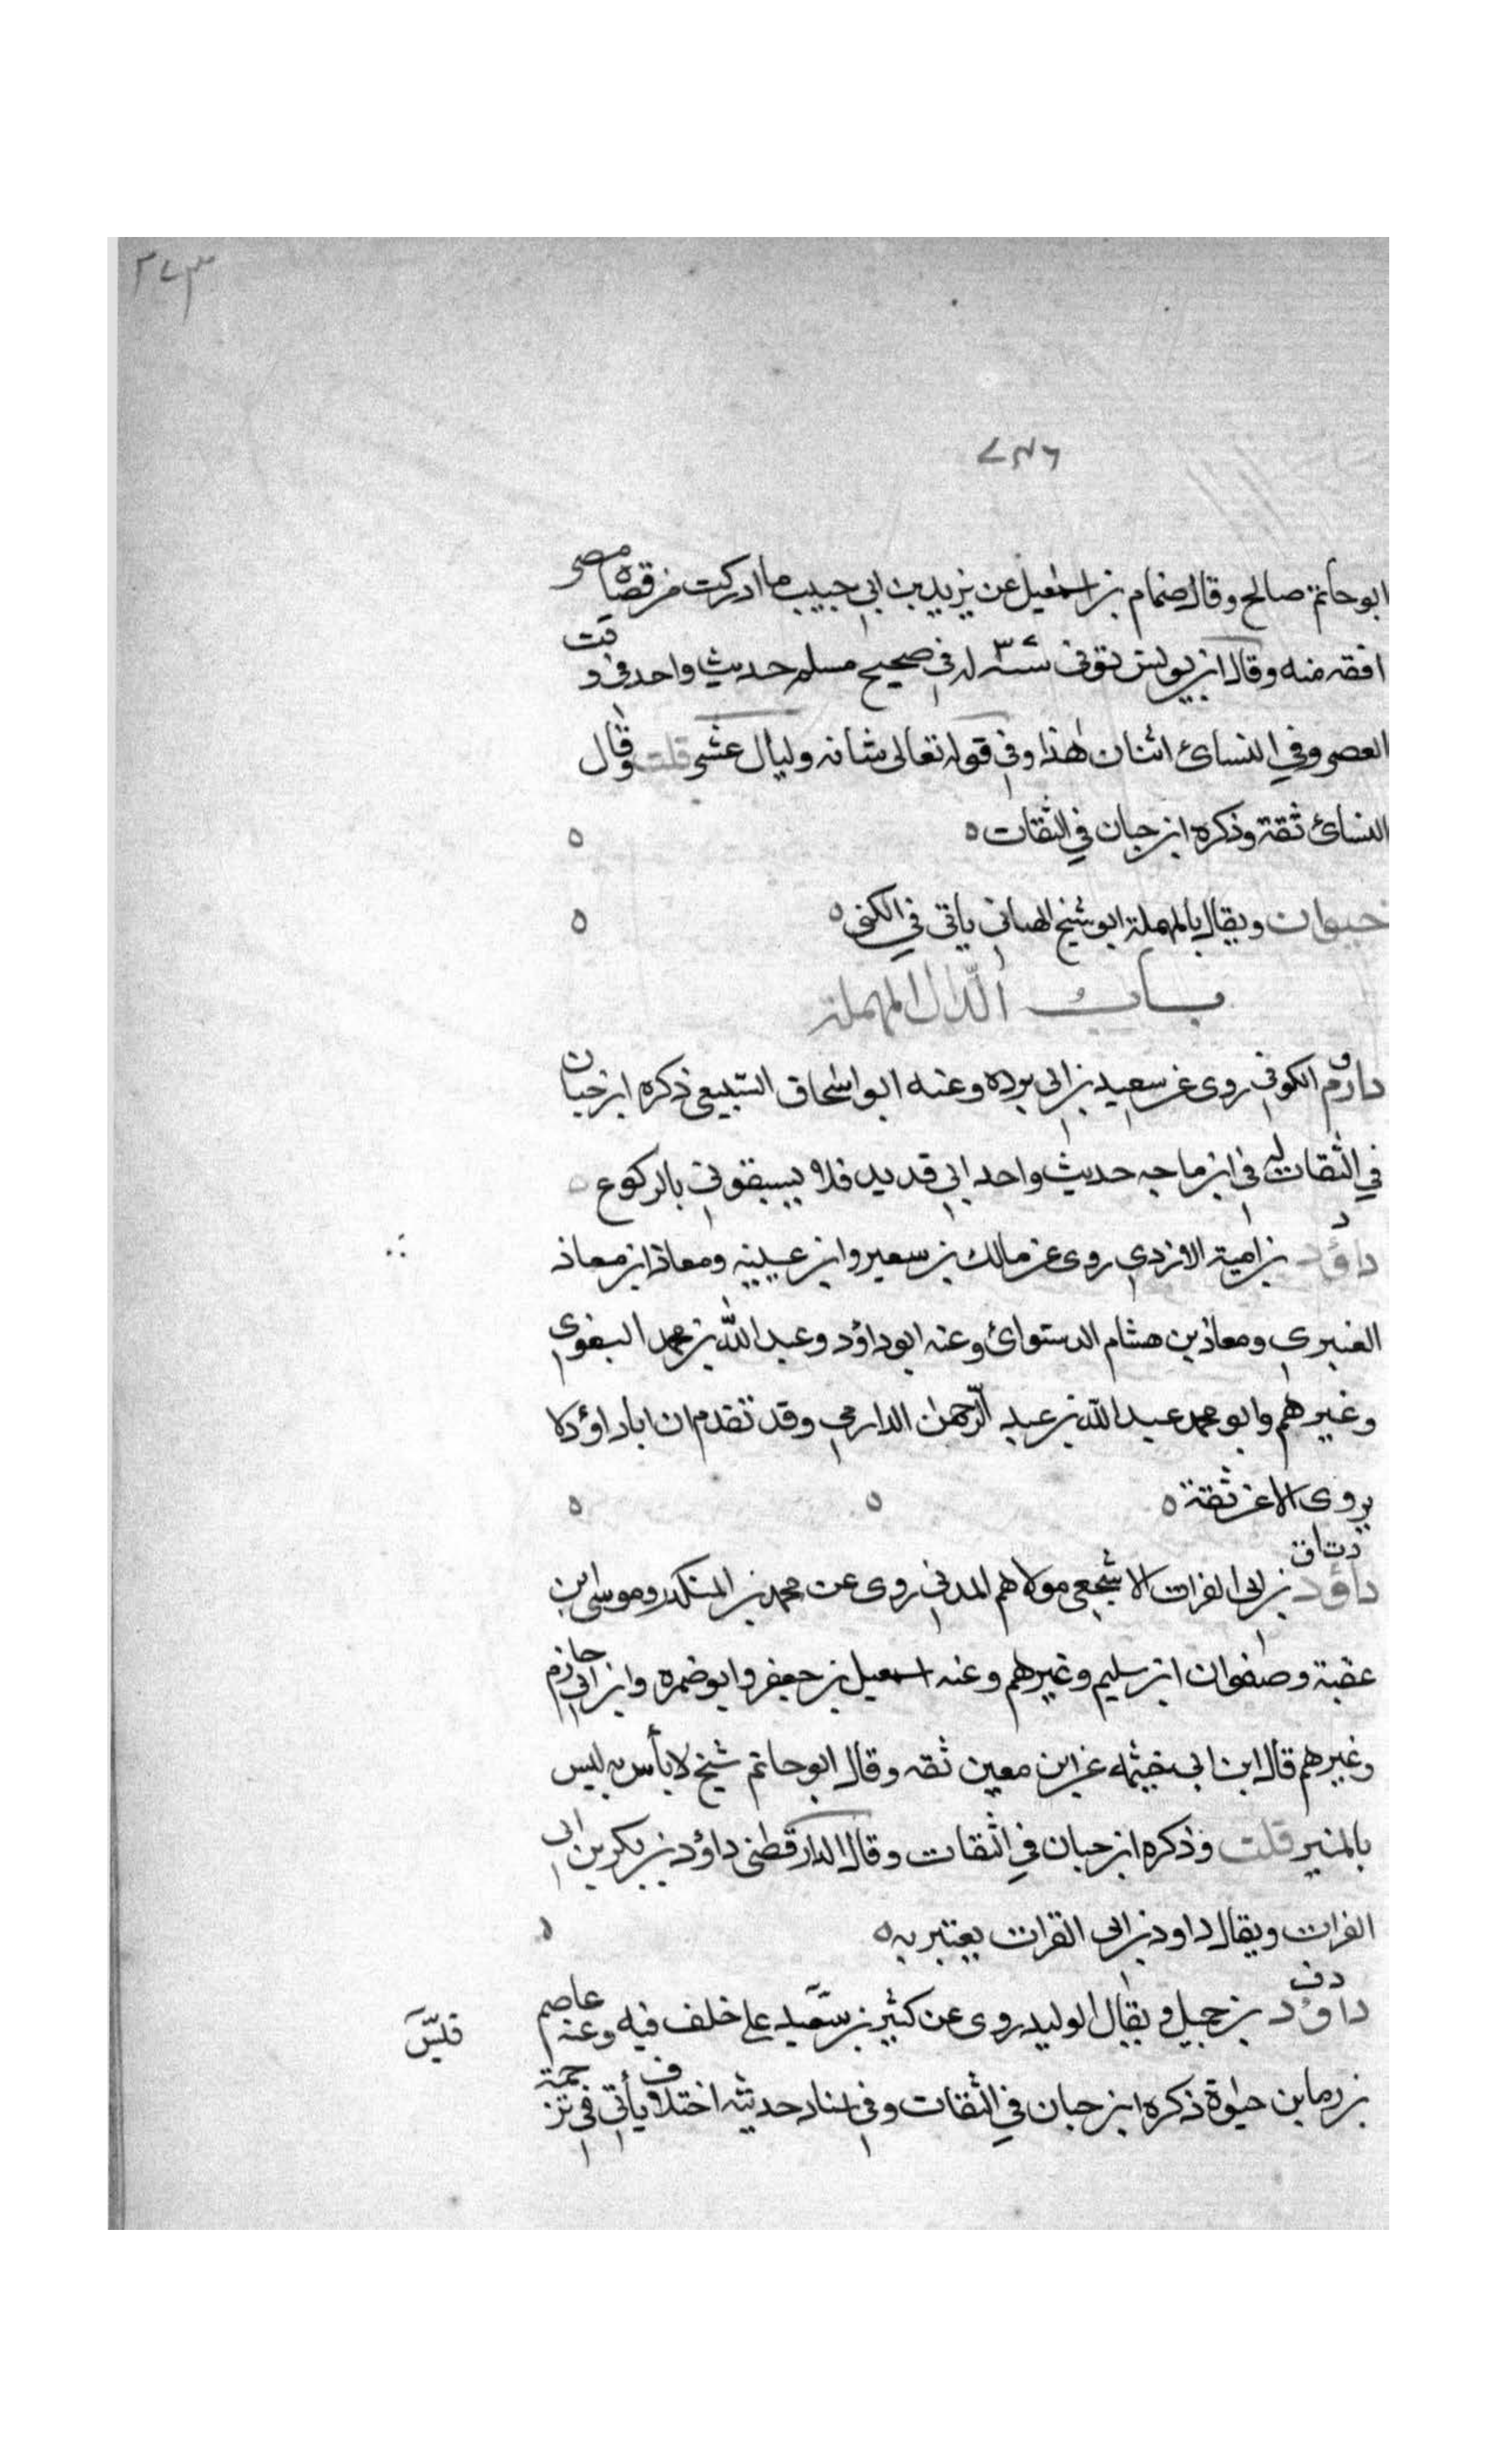 ٣٧٣
٧٣٦
ابو حاتم صالح وقال ضمام بن اسمعيل عن يزيد بن ابي حبيب ما ادركت من قضاة مصر
افقه منه وقال ابن يونس توفى سنة له في صحيح مسلم حديث واحد في د
قت
العصر وفي النسائ اثنان هذا وفي قوله تعالى شانه وليال عشر قلت وقال
النسائ ثقة وذكره ابن حبان في الثقات ٥
حيوان ويقال بالمهملة ابو شيخ الهنائي ياتى في الكنى ٥
باب الدال المهملة
ق
دارم الكوفي روى عن سعيد بن ابى برده وعنه ابو اسحاق السبيعي ذكره ابن حبان
في الثقات له في ابن ماجه حديث واحد اني قد يدن فلا يسبقوني بالركوع
د
داؤد بن امية الازدي روى عن مالك بن سعير وابن عيينه ومعاذ ابن معاذ
العنبري ومعاذ بن هشام الدستوائ وعنه ابو داؤد وعبد الله بن محمد البغوي
وغيرهم وابو محمد عبد الله بن عبد الرحمن الدارمي وقد تقدم ان ابا داؤد لا
يروى الا عن ثقة ٥
دت ق
داؤد بن ابى الفرات الاشجعي مولاهم المدني روى عن محمد بن المنكدر وموسى ابن
عقبة وصفوان ابن سليم وغيرهم وعنه اسمعيل بن جعفر وابو ضمره وابن ابي حازم
وغيرهم قال ابن ابى خيثمه عن ابن معين ثقه وقال ابو حاتم شيخ لا بأس به ليس
بالمتين قلت وذكره ابن حبان في الثقات وقال الدارقطنى داؤد بن بكر بن ابى
الفرات ويقال داود بن ابى الفرات يعتبر به ٥
د ق
داؤد بن جميل ويقال الوليد روى عن كثير بن سعيد على خلف فيه وعنه عاصم
قليس
بن رجا بن حيوة ذكره ابن حبان في الثقات وفي اسناد حديثه اختلاف يأتي في ترجمة